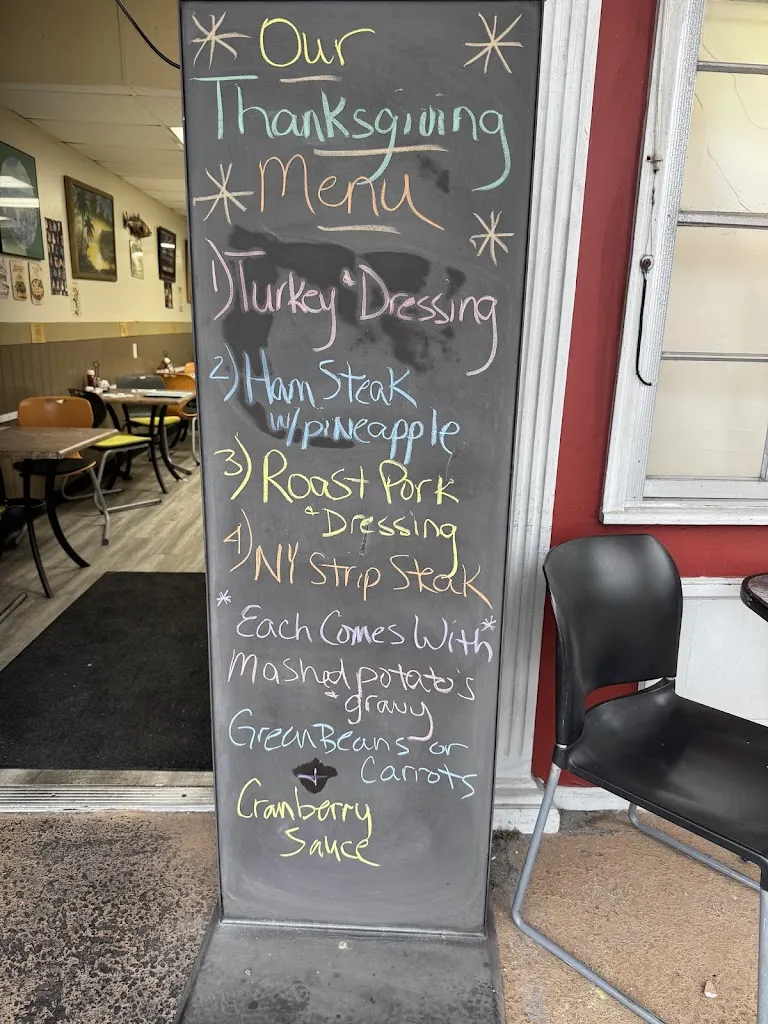 Our
Thanksgiving
Menu
1) Turkey & Dressing
2) Ham Steak
w/ pineapple
3) Roast Pork
& Dressing
4) NY Strip Steak
* Each Comes With *
mashed potato's
& gravy
Green Beans or
Carrots
+
Cranberry
Sauce